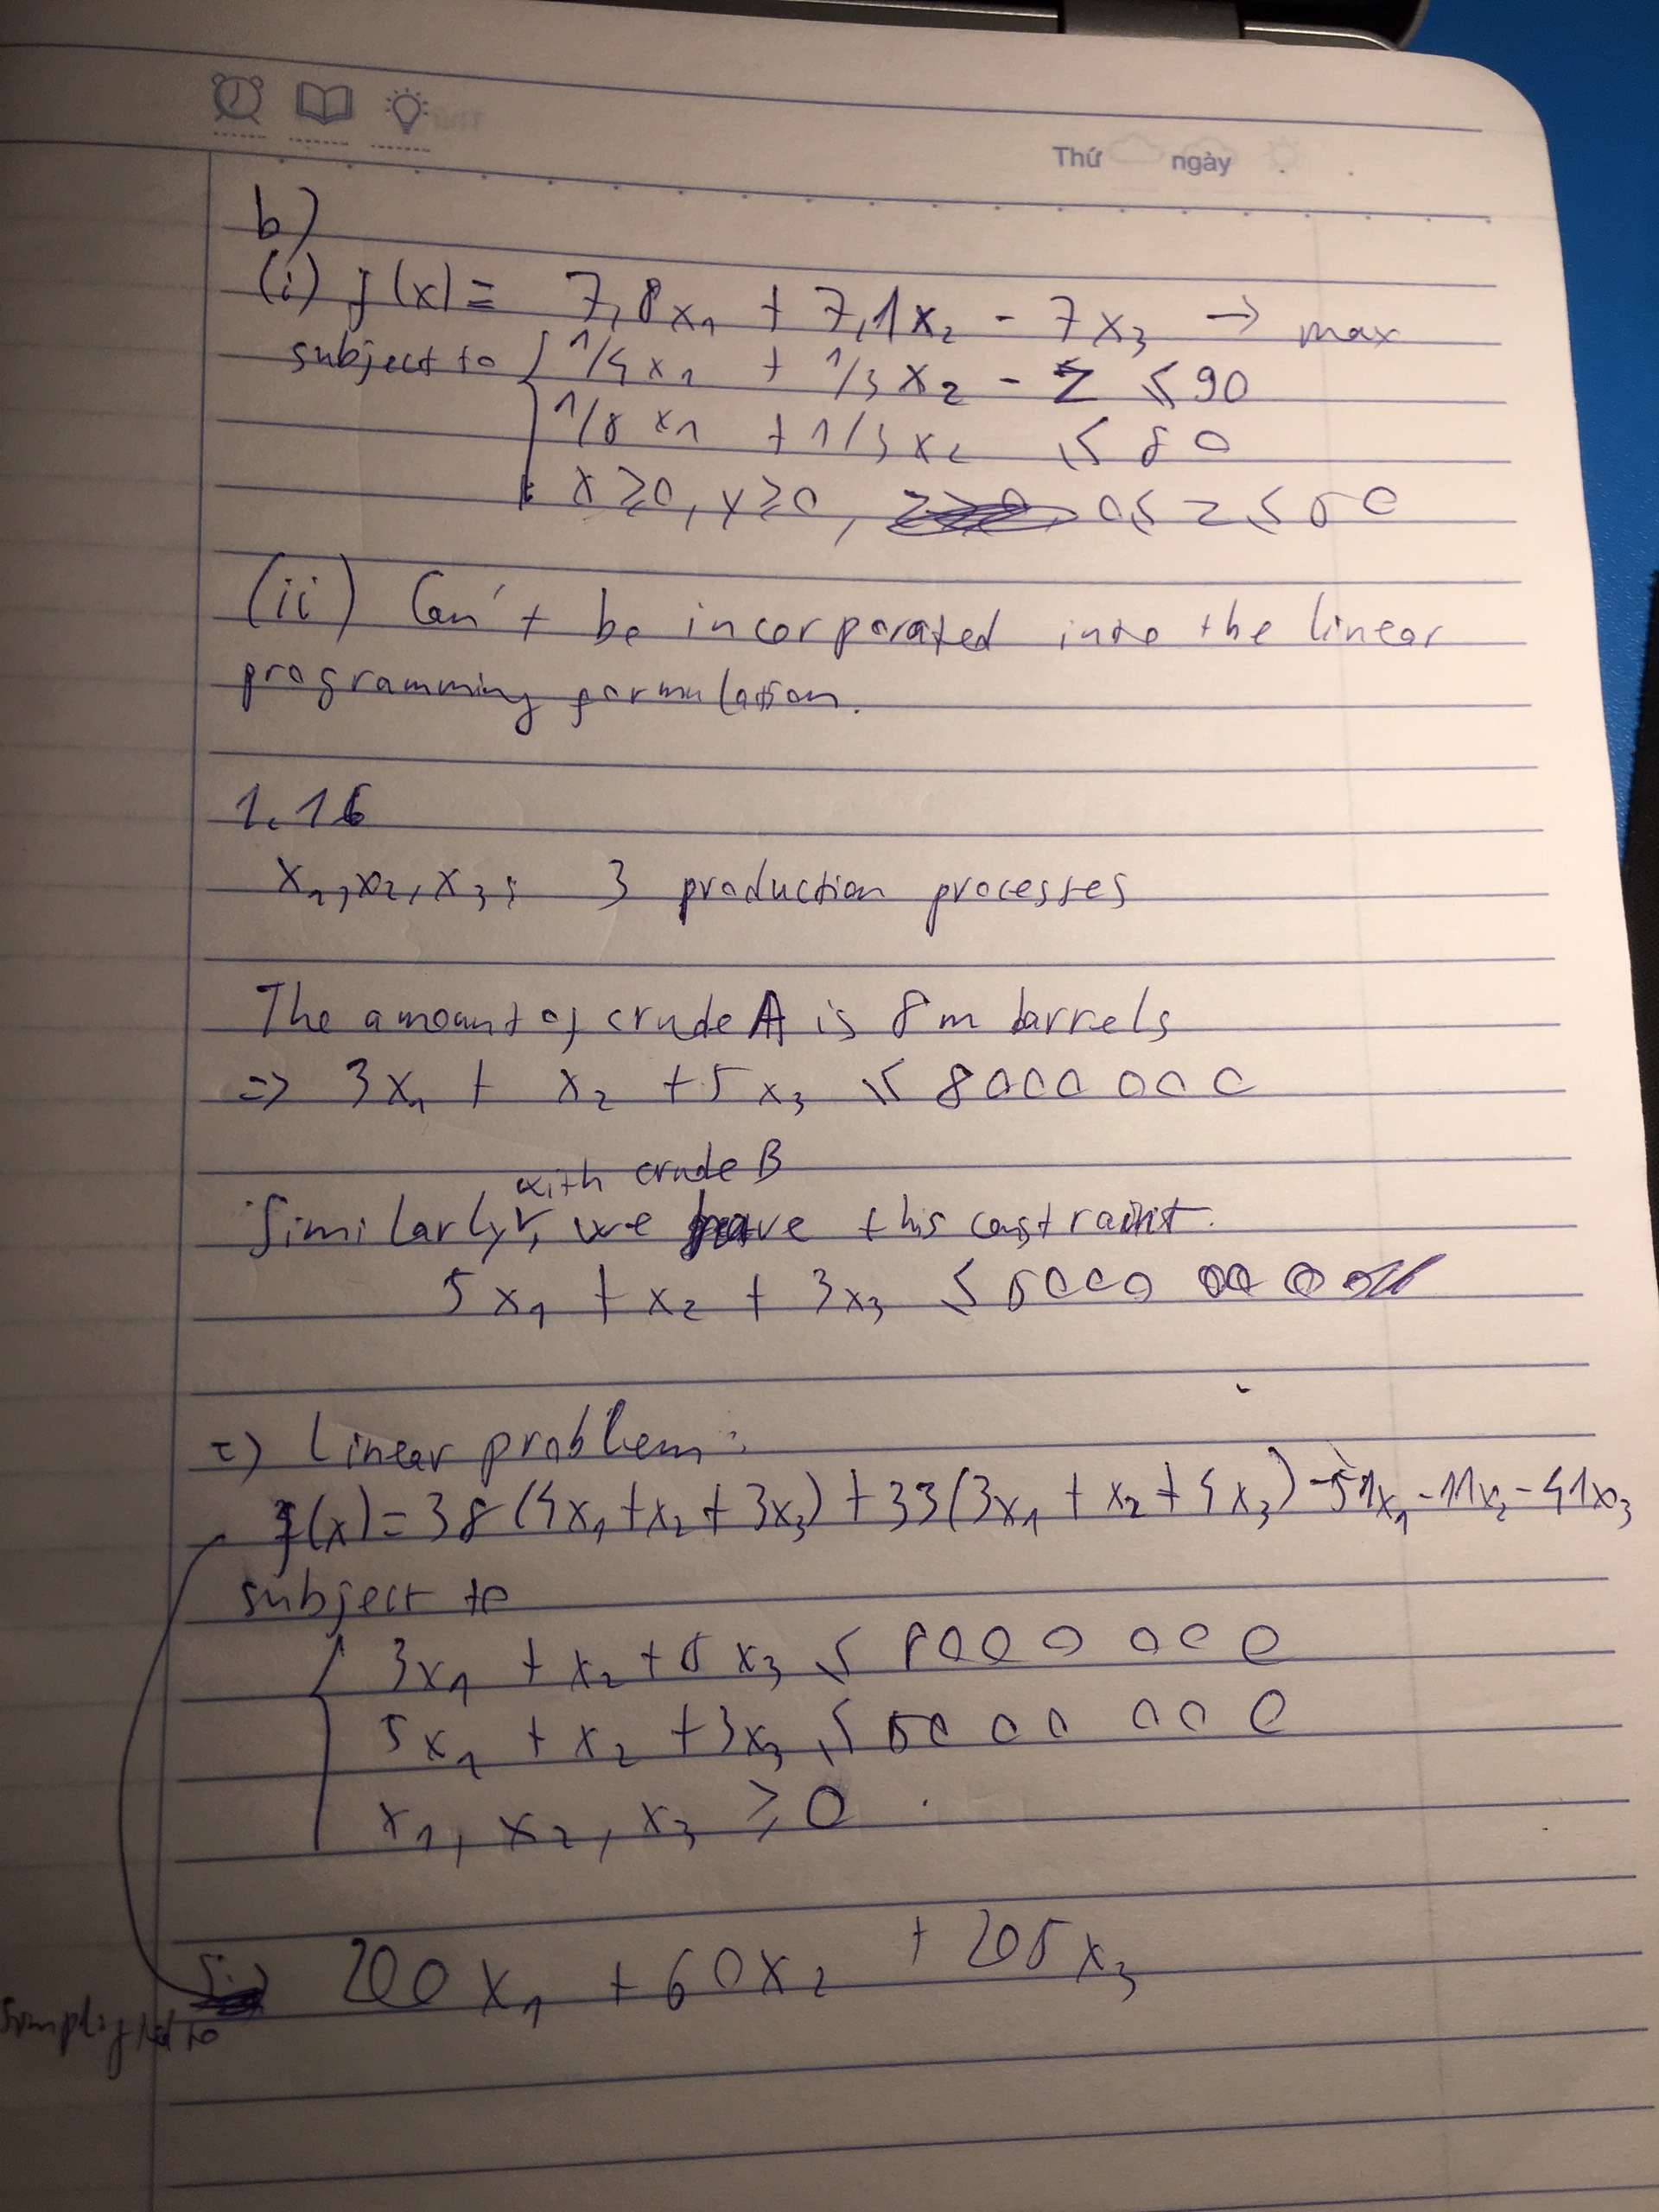 Thứ ngày
b)
(i) f(x) = 7,8x₁ + 7,1x₂ - 7x₃ → max
subject to { 1/4x₁ + 1/3x₂ - z ≤ 90
1/8x₁ + 1/3x₂ ≤ 80
x ≥ 0, y ≥ 0, 0 ≤ z ≤ 50
(ii) Can't be incorporated into the linear
programming formulation.
1.16
x₁, x₂, x₃: 3 production processes
The amount of crude A is 8m barrels
=> 3x₁ + x₂ + 5x₃ ≤ 8000 000
with crude B
Similarly, we have this constraint.
5x₁ + x₂ + 3x₃ ≤ 5000 000
=> Linear problem:
f(x) = 38(4x₁ + x₂ + 3x₃) + 33(3x₁ + x₂ + 4x₃) - 51x₁ - 11x₂ - 41x₃
subject to
{ 3x₁ + x₂ + 5x₃ ≤ 8000 000
5x₁ + x₂ + 3x₃ ≤ 5000 000
x₁, x₂, x₃ ≥ 0
200x₁ + 60x₂ + 205x₃
simplified to